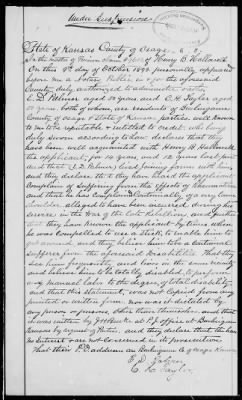 Under Suspension
State of Kansas County of Osage S.S.
In the matter of Pension claim of Henry C. Hallowell
On this 9th day of October 1893 personally appeared
before me a Notary Public in & for the aforesaid
County duly authorized to administer oaths
E. D. Palmer aged 52 years and C. H. Taylor aged
years both of whom are residents of Burlingame
County of Osage & State of Kansas parties well known
to me to be reputable & entitled to credit who being
duly sworn according to law declare that they
have been well acquainted with Henry C. Hallowell
the applicant for 14 years and 12 years last past
and that
and they declare that they have heard the applicant
complain of suffering from the effects of rheumatism
and that he has complained continually of a
shoulder alleged to have been incurred during his
service in the War of the late Rebellion and further
that they have known the applicant by times when
he was compelled to use a stick to enable him to
get around and they believe him to be a continual
sufferer from the aforesaid disabilities that they
see him frequently and have in the same way
and believe him to be totally disabled to perform
any manual labor to the degree of total disability
and that this statement was not copied from any
printed or written form nor was it dictated by
any person or persons other than themselves and that
it was written by at P.J. office at Burlingame
Kansas by request of Parties and they declare that they have
no interest & are not concerned in its prosecution
that their P.O. address are Burlingame Co of Osage Kansas
E. D. Palmer
C. H. Taylor